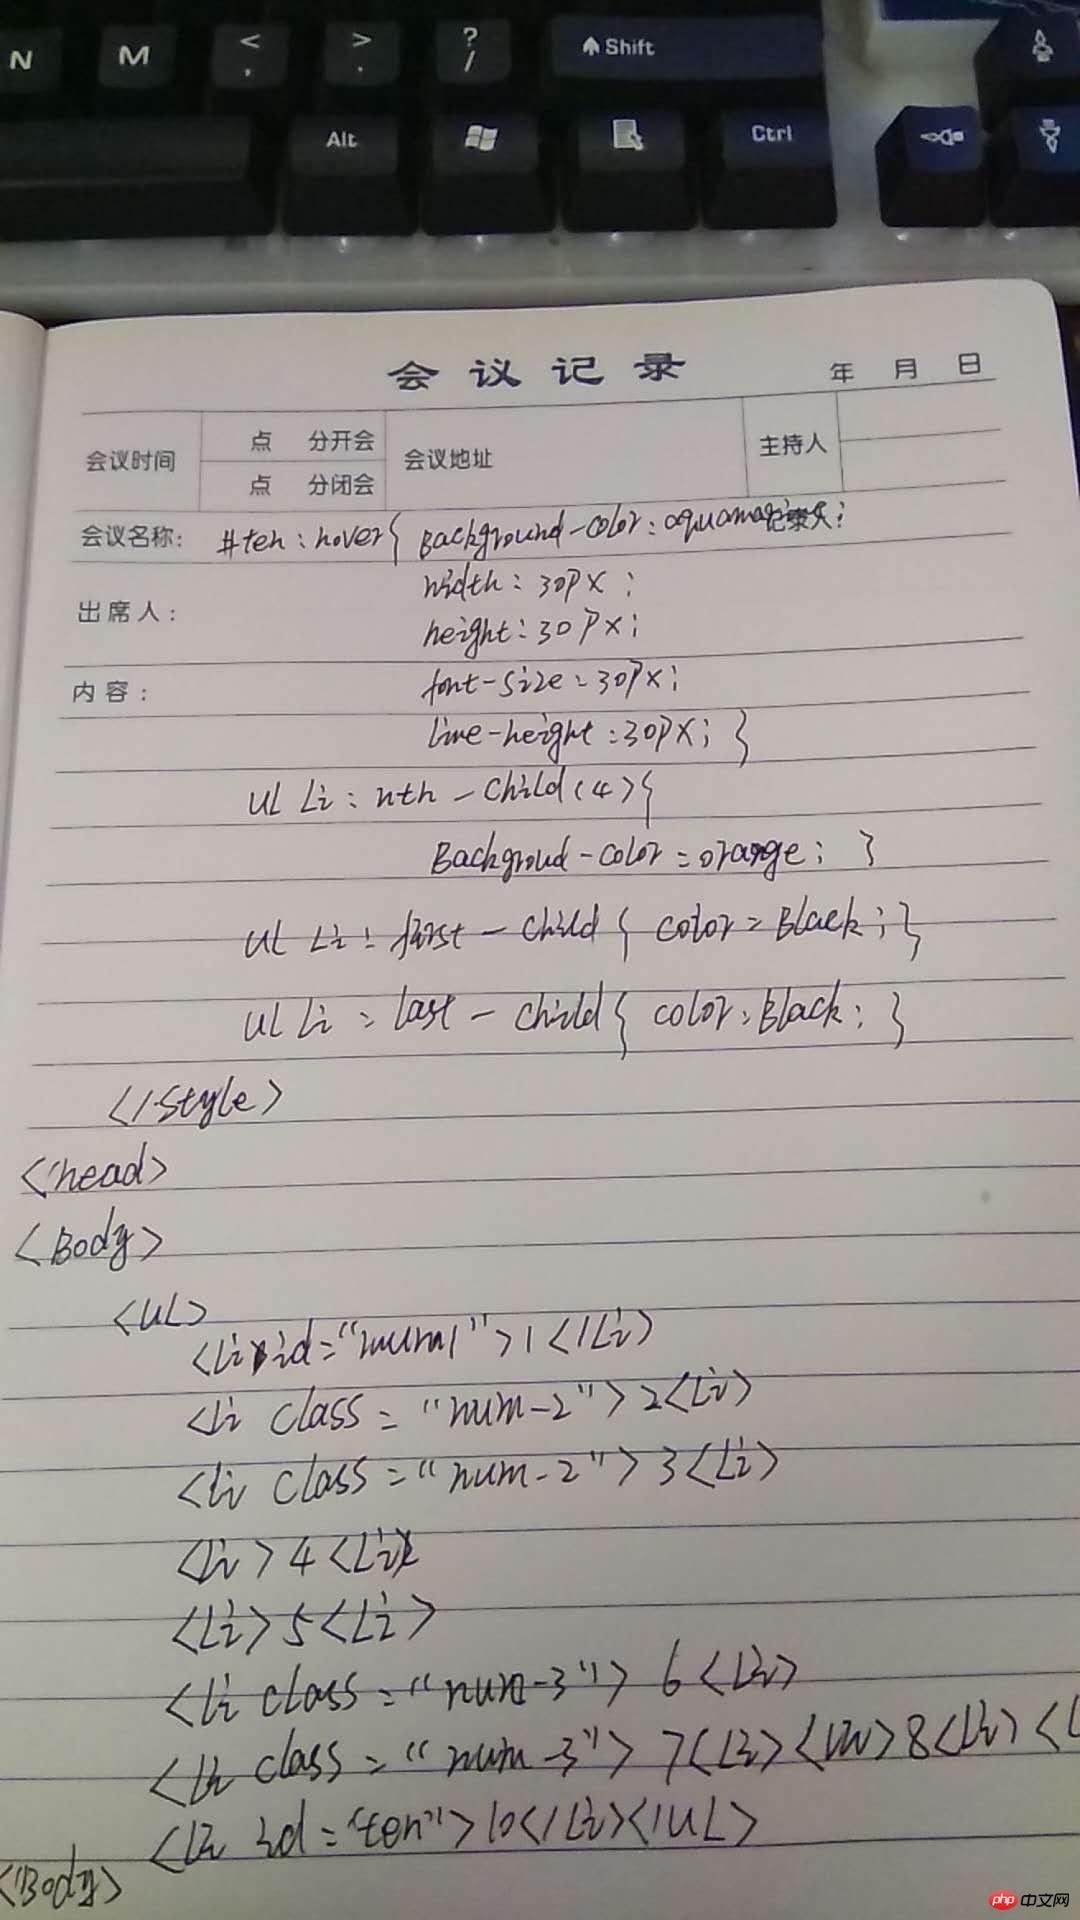 N M < , > . ? / Shift
Alt Ctrl
会议记录 年 月 日
会议时间 点 分开会 会议地址 主持人
点 分闭会
会议名称: #ten:hover{ Background-color: aquamarine; 记录人:
width: 30px;
出席人: height: 30px;
内容: font-size: 30px;
line-height: 30px; }
ul Li: nth-child(4){
Backgroud-color: orange; }
ul Li: first-child { color: Black; }
ul Li: last-child { color: Black; }
</style>
</head>
<Body>
<ul>
<Li id="num1">1</Li>
<li class="num-2">2<Li>
<li class="num-2">3<Li>
<li>4<Li>
<Li>5<Li>
<li class="num-3">6<Li>
<li class="num-3">7<Li><Li>8<Li><L
<Li id="ten">10</Li></UL>
</Body>
php 中文网